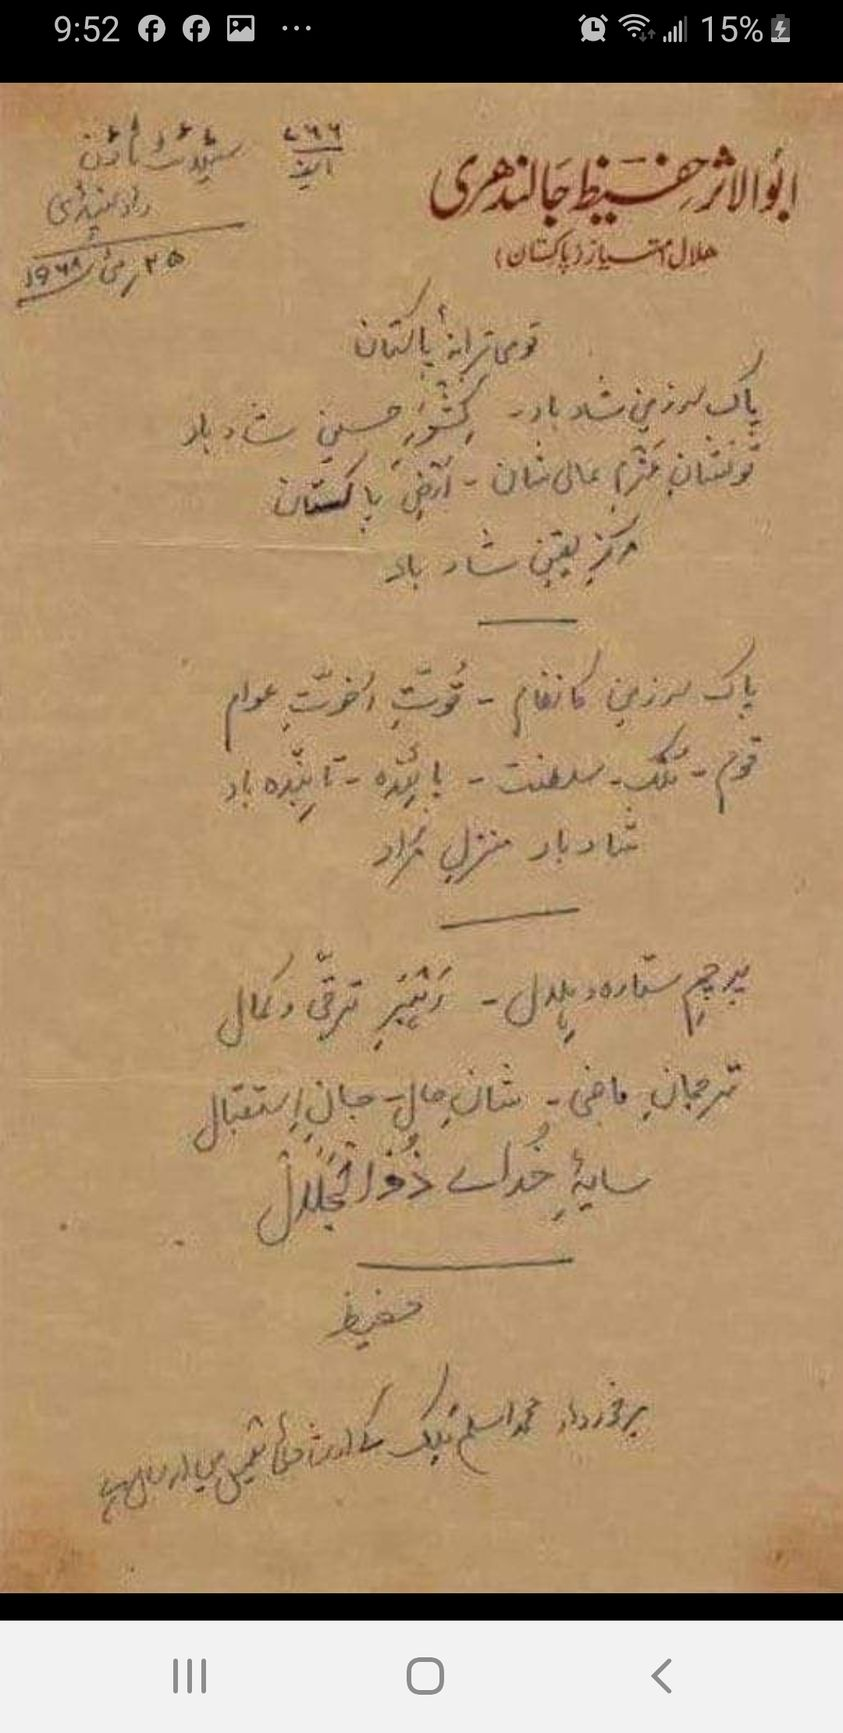 9:52
15%
ابوالاثر حفیظ جالندھری
ہلال امتیاز (پاکستان)
۷۸۶
سیٹلائٹ ٹاؤن
راولپنڈی
۲۵ مئی ۱۹۶۸
قومی ترانۂ پاکستان
پاک سرزمین شاد باد - کِشْوَرِ حسین شاد باد
تُو نشانِ عَزْمِ عالی شان - اَرْضِ پاکستان
مرکزِ یقین شاد باد
پاک سرزمین کا نظام - قُوّتِ اُخوّتِ عوام
قوم - مُلک - سلطنت - پائِنْدہ - تابِنْدہ باد
شاد باد منزلِ مُراد
پرچمِ ستارہ و ہِلال - رَہْبَرِ ترقّی و کمال
ترجمانِ ماضی - شانِ حال - جانِ اِستقبال
سایۂ خُدائے ذُوالْجَلال
حفیظ
برخوردار محمد اسلم ملک کے